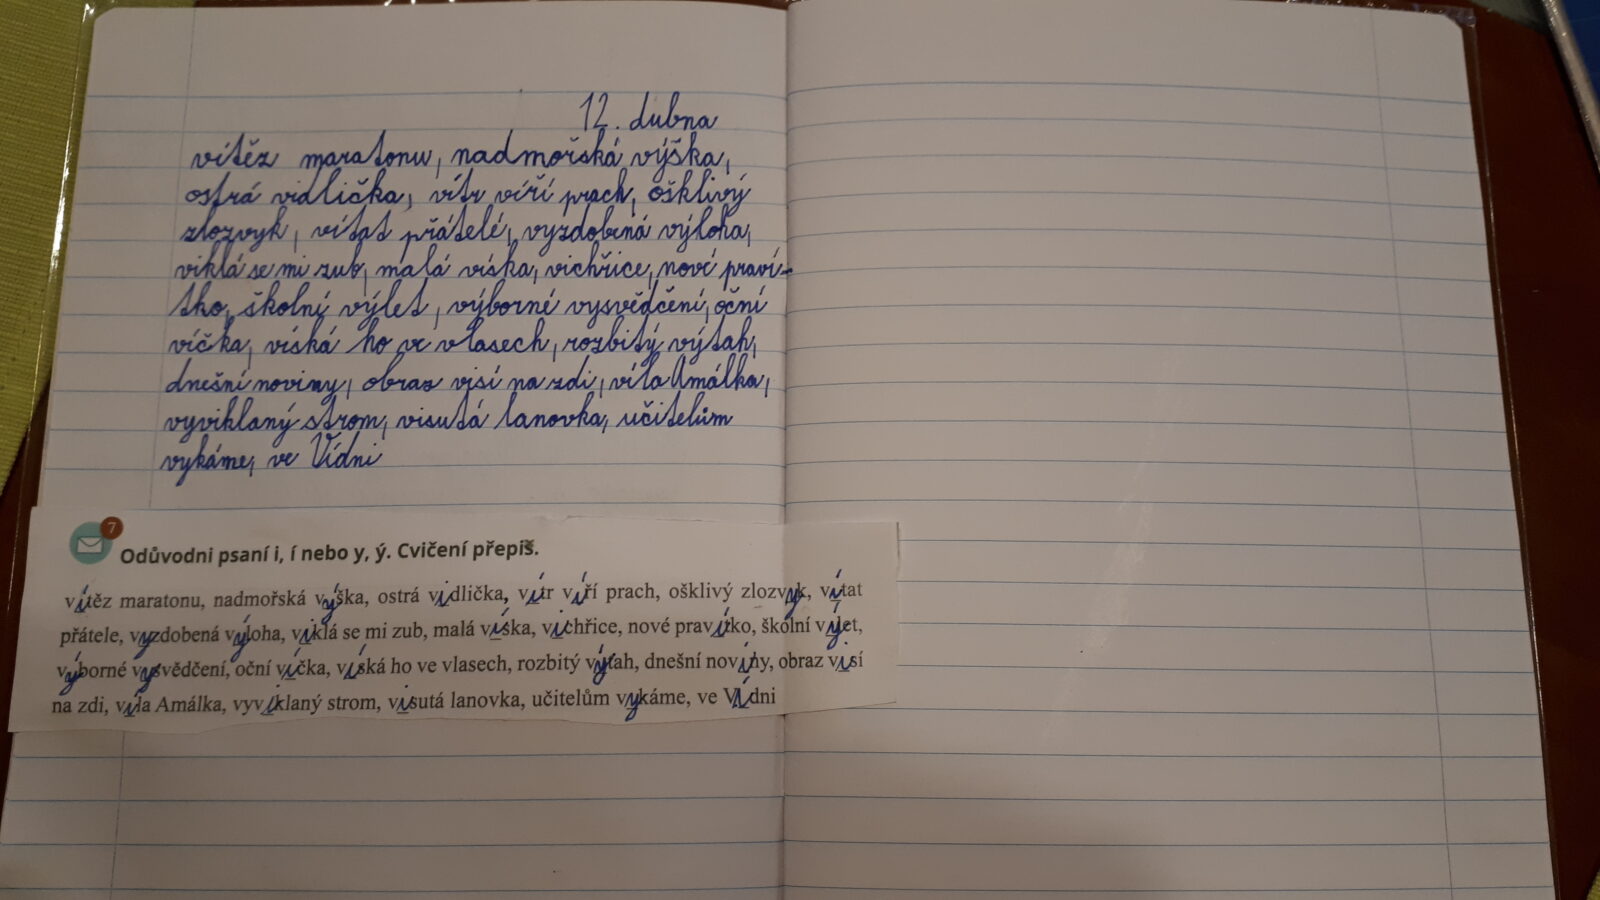 12. dubna
vítěz maratonu, nadmořská výška,
ostrá vidlička, vítr víří prach, ošklivý
zlozvyk, vítat přátelé, vyzdobená výloha,
viklá se mi zub, malá víska, vichřice, noví praví-
tko, školní výlet, výborné vysvědčení, oční
víčka, víská ho ve vlasech, rozbitý výtah,
dnešní noviny, obraz visí na zdi, víla Amálka,
vyviklaný strom, visutá lanovka, učitelům
vykáme, ve Vídni
7
Odůvodni psaní i, í nebo y, ý. Cvičení přepiš.
vítěz maratonu, nadmořská výška, ostrá vidlička, vítr víří prach, ošklivý zlozvyk, vítat
přátele, vyzdobená výloha, viklá se mi zub, malá víska, vichřice, nové pravítko, školní výlet,
výborné vysvědčení, oční víčka, víská ho ve vlasech, rozbitý výtah, dnešní novíny, obraz visí
na zdi, víla Amálka, vyviklaný strom, visutá lanovka, učitelům vykáme, ve Vídni